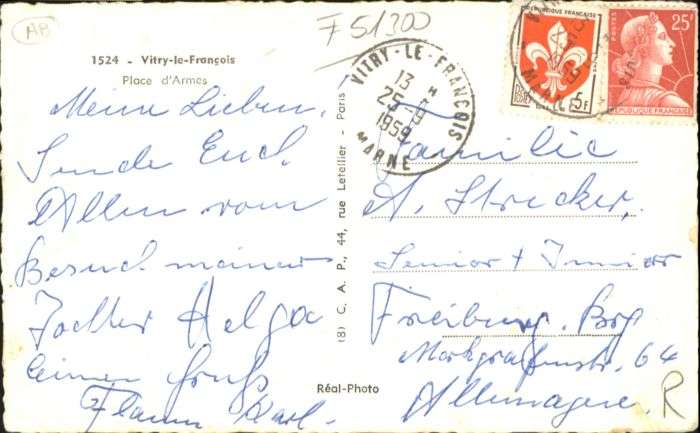 AB
F 51300
1524 - Vitry-le-François
Place d'Armes
Meine Lieben.
Sende Euch
Allen vom
Besuch meiner
Tochter Helga
einen Gruß
Karl.
(8) C. A. P., 44, rue Letellier - Paris
Réal-Photo
VITRY-LE-FRANÇOIS
13 H
25 - 9
1959
MARNE
RÉPUBLIQUE FRANÇAISE
5F
25F
RÉPUBLIQUE FRANÇAISE
Familie
A. Strecker,
Senior + Junior
Freiburg. Brg
Markgrafenstr. 64
Allemagne.
R